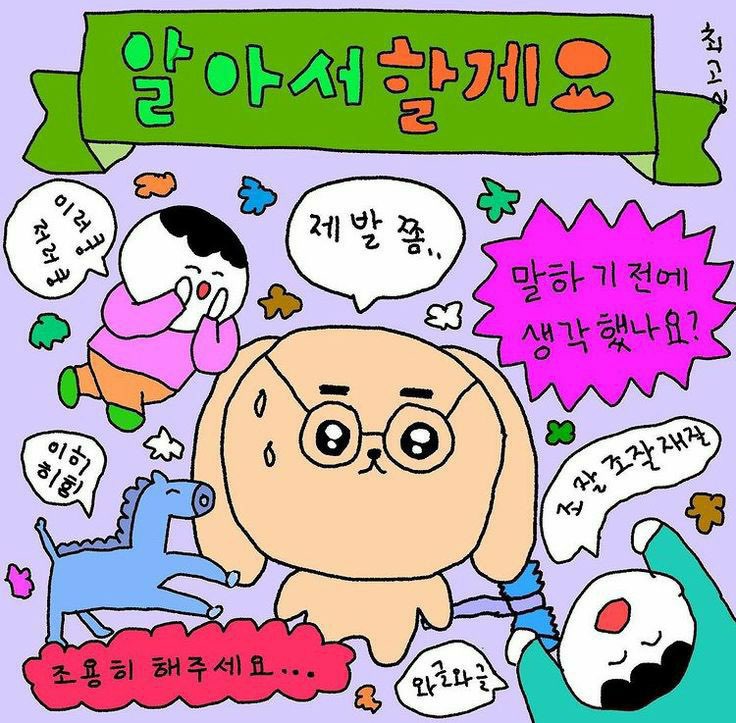 알아서할게요
최고심
이러쿵
저러쿵
제발 쫌..
말하기전에
생각했나요?
이히
히힝
조잘조잘재잘
조용히 해주세요...
와글와글